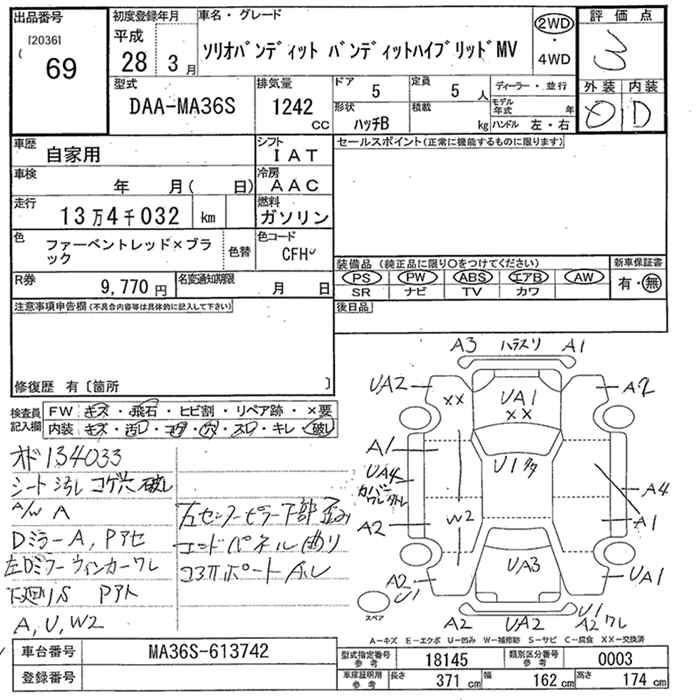 出品番号
[2036]
69
初度登録年月
平成
28 3月
車名・グレード
ソリオバンディット バンディットハイブリッドMV
2WD
・
4WD
評価点
3
外装 内装
D
型式
DAA-MA36S
排気量
1242
cc
ドア
5
定員
5 人
形状
ハッチB
積載
kg
ディーラー・並行
モデル年式 年
ハンドル 左・右
車歴
自家用
シフト
IAT
車検
年 月( 日)
冷房
AAC
走行
13万4千032 km
燃料
ガソリン
色
ファーベントレッド×ブラック
色替
色コード
CFH
R券
9,770 円
名変通知期限
月 日
セールスポイント(正常に機能するものに限ります)
装備品 (純正品に限り〇をつけてください)
PS PW ABS エアB AW
SR ナビ TV カワ
新車保証書
有・無
後日品
注意事項申告欄(不具合内容等は具体的に記入して下さい)
修復歴 有〔箇所 〕
検査員記入欄
FW キズ・飛石・ヒビ割・リペア跡・×要
内装 キズ・汚レ・コゲ・穴・スレ・キレ・破レ
オド134033
シート汚レ コゲ穴 破レ
A/W A
Dミラー A, Pアセ
左Dミラーウインカーワレ
下廻りS Pアト
A, U, W2
左センターピラー下部歪み
エンドパネル曲り
A3 ハラスリ A1
UA2
XX
UA1
XX
A2
A1
UA4
U1タタ
A4
A2
W2
A1
A2
U1
UA3
UA1
スペア
A2
UA2
U1
A2ワレ
A-キズ E-エクボ U-凹み W-補修跡 S-サビ C-腐食 XX-交換済
車台番号
MA36S-613742
登録番号
型式指定番号
参考
18145
類別区分番号
参考
0003
車庫証明用
参考
長さ
371 cm
幅
162 cm
高さ
174 cm